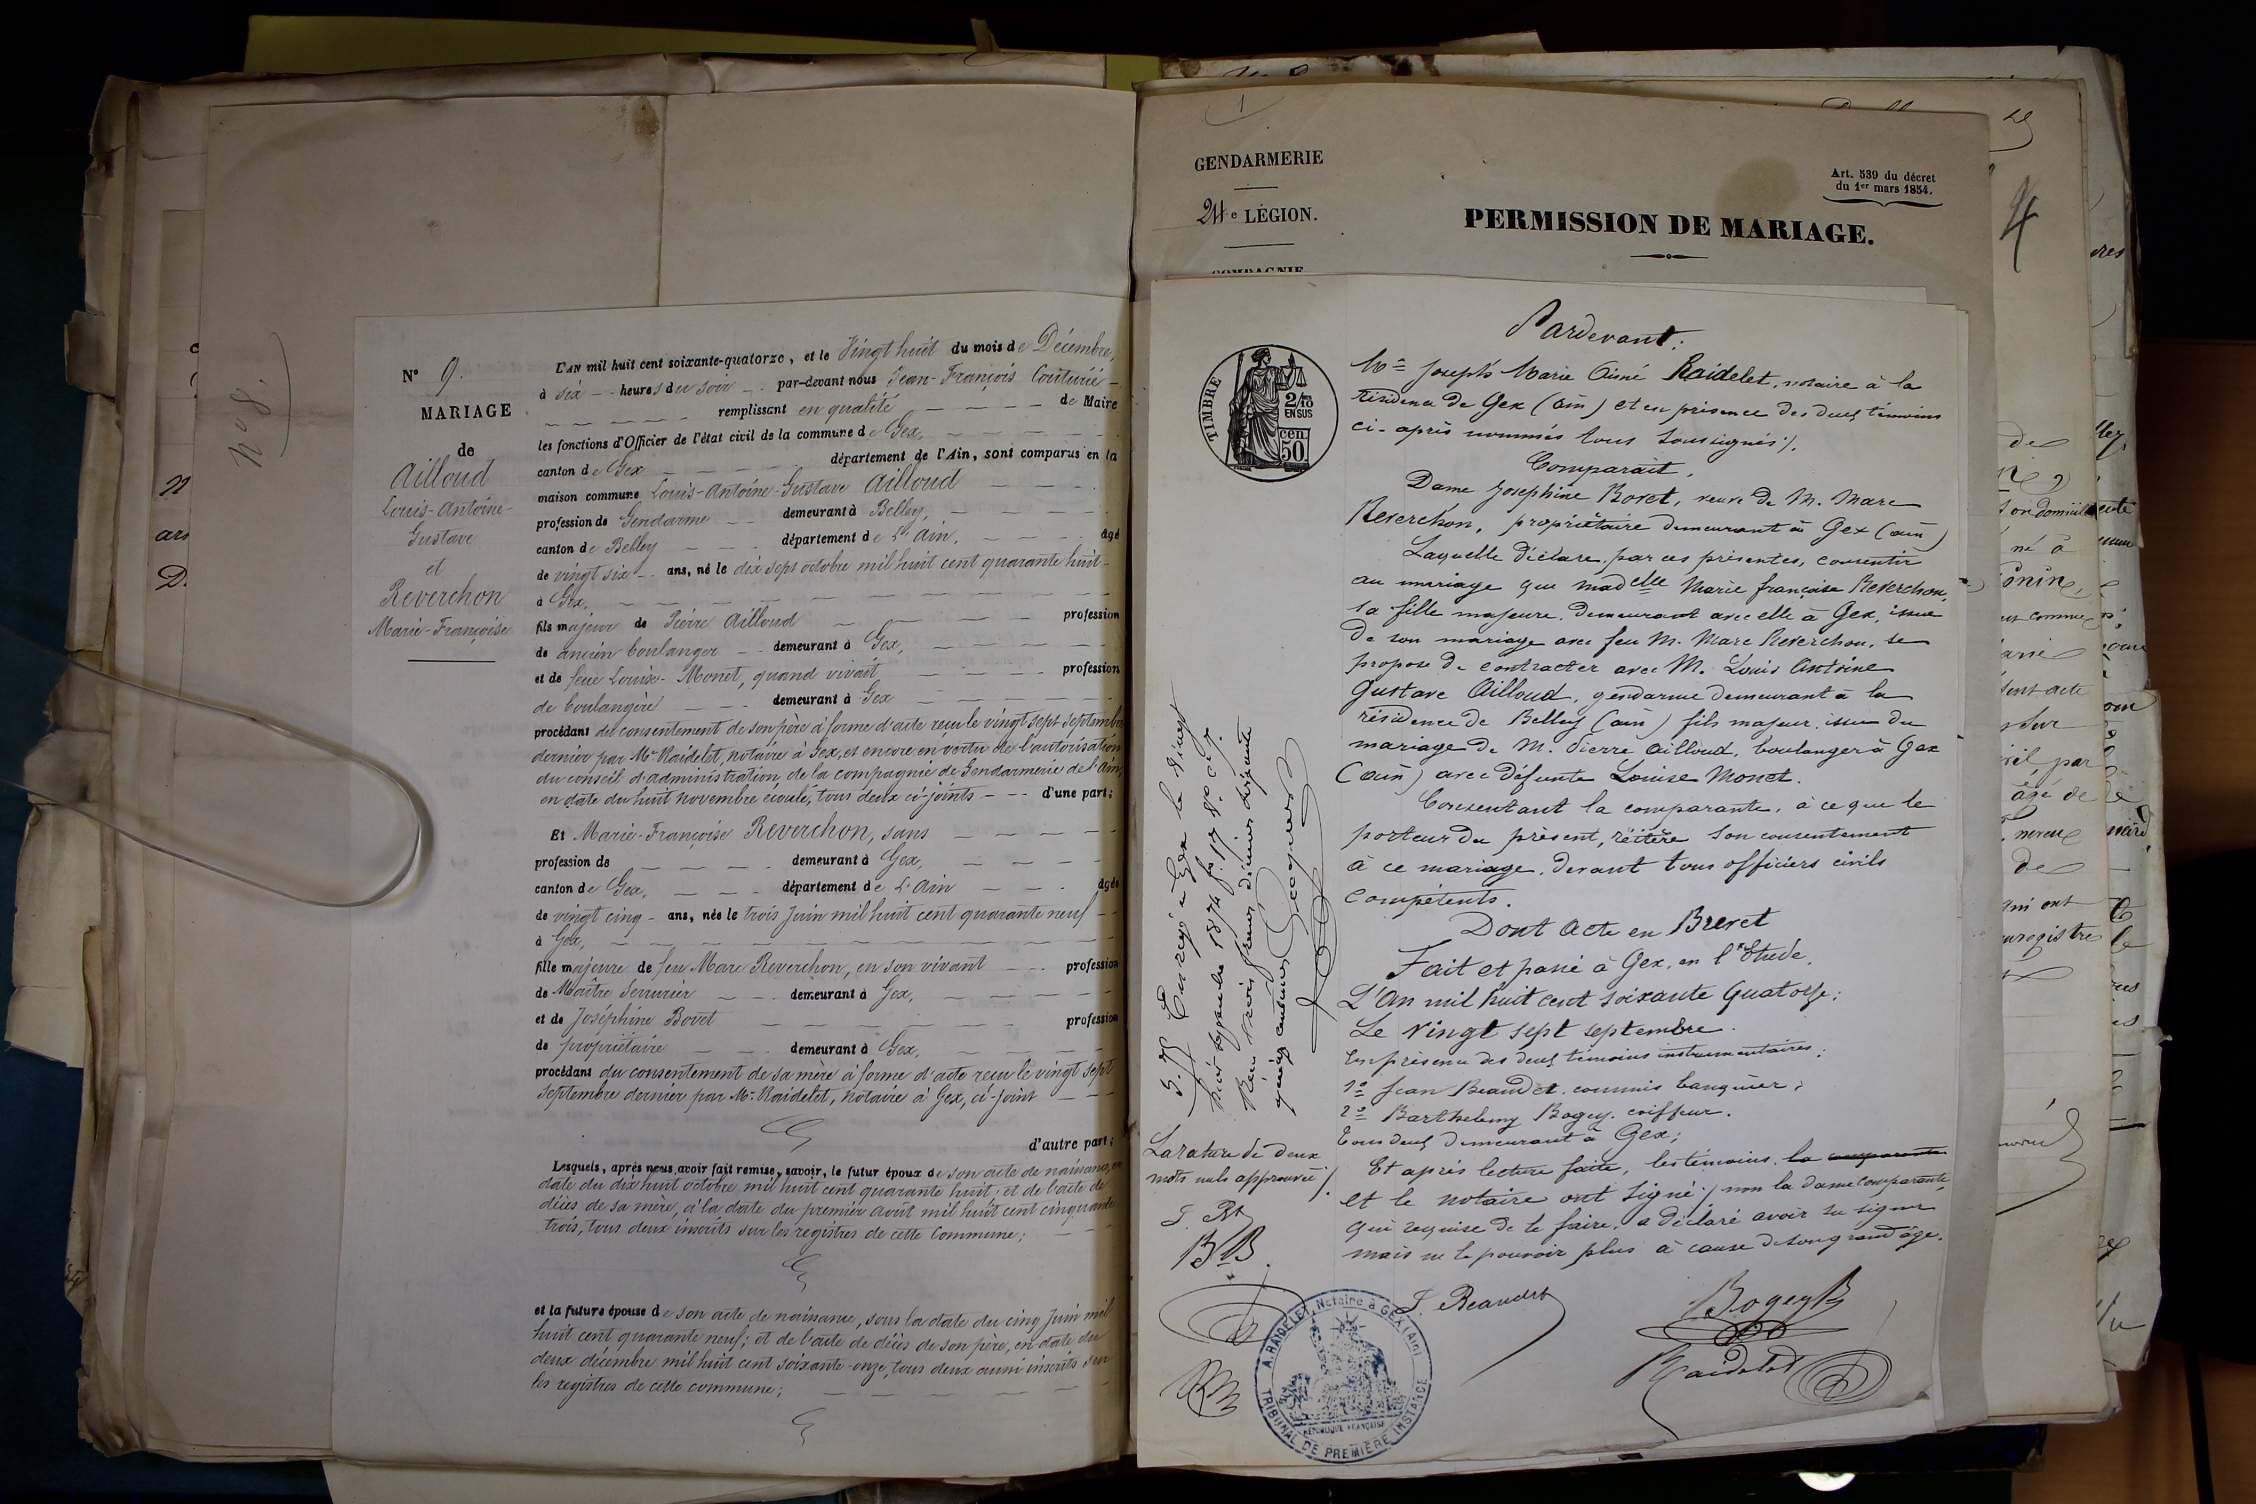 N° 9.
MARIAGE
de
Ailloud
Louis-Antoine-
Gustave
et
Reverchon
Marie-Françoise
L'AN mil huit cent soixante-quatorze, et le Vingt huit du mois de Décembre,
à six heures du soir par-devant nous Jean-François Couturié
remplissant en qualité de Maire
les fonctions d'Officier de l'état civil de la commune de Gex,
canton de Gex département de l'Ain, sont comparus en la
maison commune Louis-Antoine-Gustave Ailloud
profession de Gendarme demeurant à Belley,
canton de Belley département de L'Ain, âgé
de vingt six ans, né le dix sept octobre mil huit cent quarante huit
à Gex,
fils majeur de Pierre Ailloud profession
de ancien boulanger demeurant à Gex,
et de feue Louise Monet, quand vivait profession
de boulangère demeurant à Gex
procédant du consentement de son père à forme d'acte reçu le vingt sept septembre
dernier par Me Raidelet, notaire à Gex, et encore en vertu de l'autorisation
du conseil d'administration de la compagnie de Gendarmerie de l'Ain,
en date du huit novembre écoulé, tous deux ci-joints d'une part;
Et Marie-Françoise Reverchon, sans
profession de demeurant à Gex,
canton de Gex, département de L'Ain âgée
de vingt cinq ans, née le trois Juin mil huit cent quarante neuf
à Gex,
fille majeure de feu Marc Reverchon, en son vivant profession
de Maître Serrurier demeurant à Gex,
et de Joséphine Bovet profession
de propriétaire demeurant à Gex,
procédant du consentement de sa mère à forme d'acte reçu le vingt sept
septembre dernier par Me Raidelet, notaire à Gex, ci-joint
d'autre part;
Lesquels, après nous avoir fait remise, savoir, le futur époux de son acte de naissance, en
date du dix huit octobre mil huit cent quarante huit; et de l'acte de
décès de sa mère, à la date du premier avril mil huit cent cinquante
trois, tous deux inscrits sur les registres de cette Commune;
et la future épouse de son acte de naissance, sous la date du cinq Juin mil
huit cent quarante neuf; et de l'acte de décès de son père, en date du
deux décembre mil huit cent soixante-onze, tous deux aussi inscrits sur
les registres de cette commune;
N° 8.
GENDARMERIE
24e LÉGION.
COMPAGNIE
Art. 539 du décret
du 1er mars 1854.
PERMISSION DE MARIAGE.
TIMBRE
2/10
EN SUS
50 cen
Pardevant:
Me Joseph Marie Aimé Raidelet, notaire à la
résidence de Gex (ain) et en présence des deux témoins
ci-après nommés tous soussignés;
Comparait.
Dame Josephine Bovet, veuve de M. Marc
Reverchon, propriétaire demeurant à Gex (ain)
Laquelle déclare, par ces présentes, consentir
au mariage que madelle Marie françoise Reverchon,
sa fille majeure, demeurant avec elle à Gex, issue
de son mariage avec feu M. Marc Reverchon, se
propose de contracter avec M. Louis Antoine
Gustave Ailloud, gendarme demeurant à la
résidence de Belley (ain) fils majeur issu du
mariage de M. Pierre Ailloud, boulanger à Gex
(ain) avec défunte Louise Monet.
Consentant la comparante, à ce que le
porteur du présent, réitère son consentement
à ce mariage, devant tous officiers civils
compétents.
Dont acte en Brevet
Fait et passé à Gex, en l'Etude,
L'An mil huit cent soixante Quatorze;
Le vingt sept septembre.
En présence des deux témoins instrumentaires;
1° Jean Beaudet, commis banquier;
2° Barthelemy Bogey, coiffeur.
tous deux demeurant à Gex;
Et après lecture faite, les témoins, la comparante
et le notaire ont signé; non la dame comparante,
qui requise de le faire, a déclaré avoir su signer
mais ne le pouvoir plus à cause de son grand âge.
Enregistré à Gex le vingt
huit septembre 1874
Reçu trois francs décimes soixante
quinze centimes
La rature de deux
mots nuls approuvée
B B
J. Beaudet
Bogey B
Raidelet
A. RAIDELET, Notaire à GEX (Ain)
RÉPUBLIQUE FRANÇAISE
TRIBUNAL DE PREMIÈRE INSTANCE